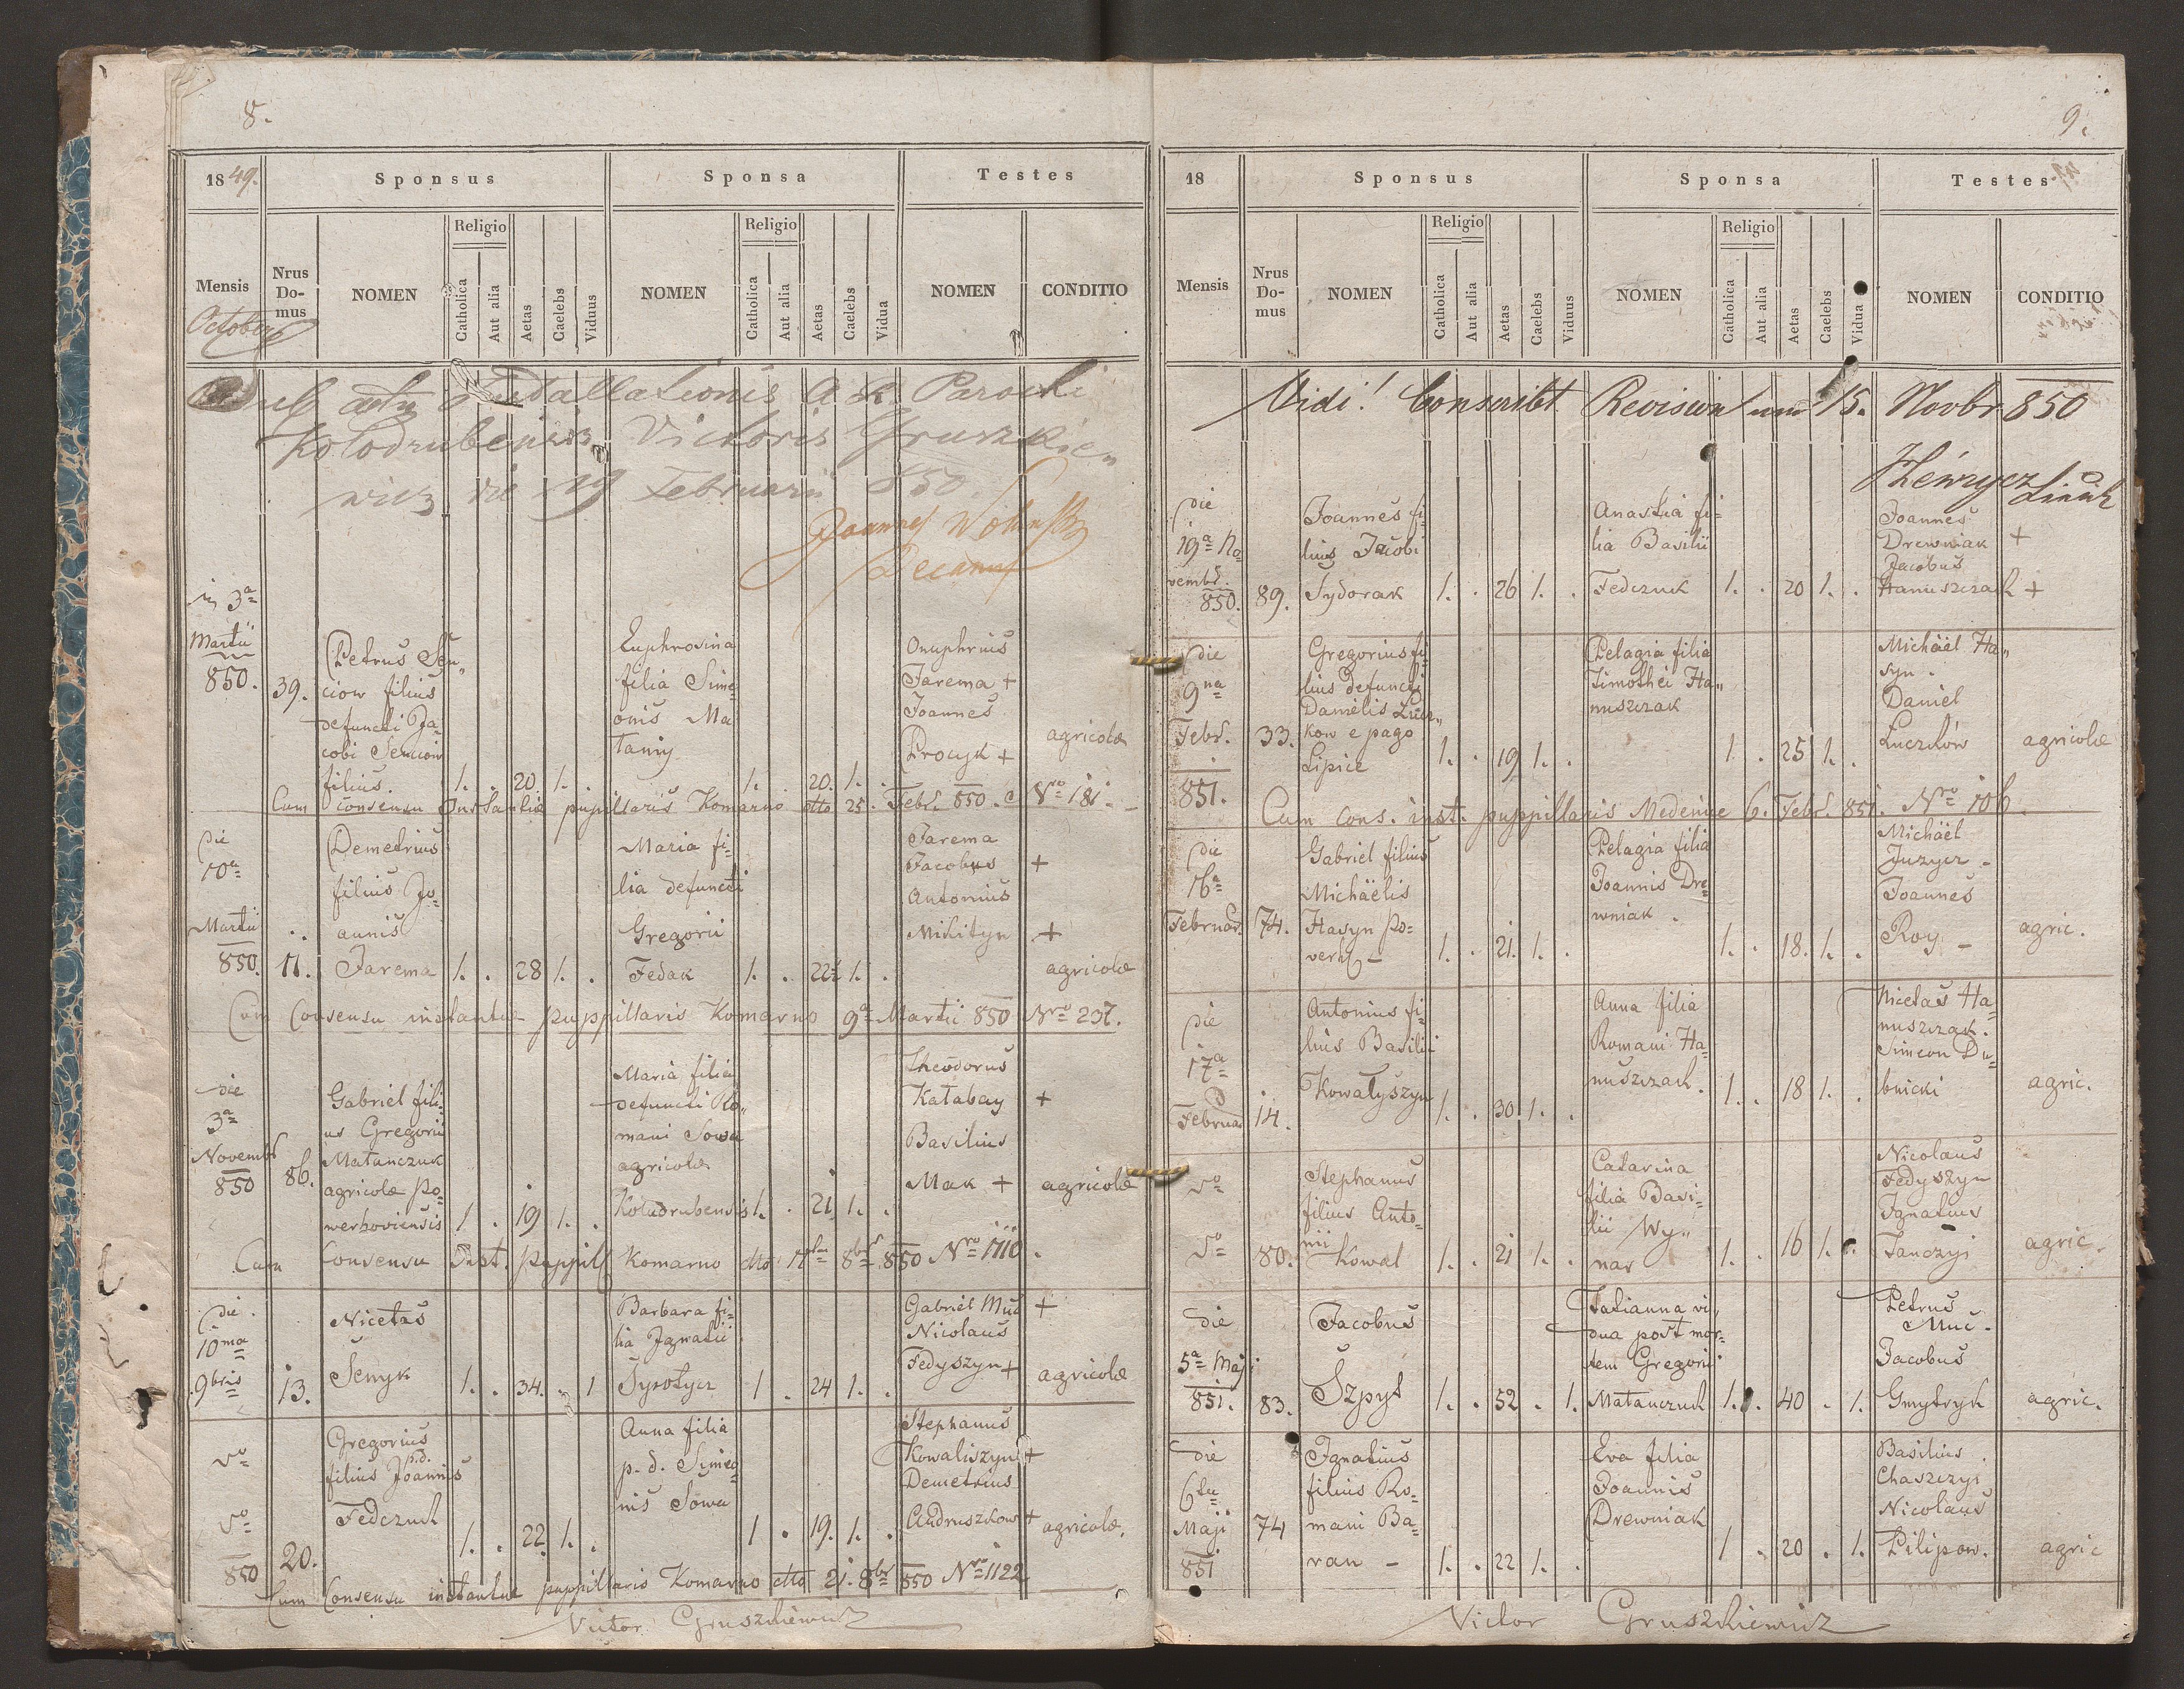 8.
1849.
Sponsus
Sponsa
Testes
Mensis
Nrus Do-mus
NOMEN
Religio
Catholica
Aut alia
Aetas
Caelebs
Viduus
NOMEN
Religio
Catholica
Aut alia
Aetas
Caelebs
Vidua
NOMEN
CONDITIO
Octobris
sub actu Installationis Parochi
Kolodrubensis Victoris Gruszkie„
wicz die 19 Februarii 850.
Joannes
Decanus
3ª
Martii
850.
39.
Petrus Sen„
ciow filius
defuncti Ja=
cobi Senciow
filius.
1. . 20. 1. .
Euphrosina
filia Sime
onis Ma
tanij
1. . 20. 1. .
Onuphrius
Jarema +
Joannes
Procyk +
agricolæ
Cum consensu Instantiæ pupillaris Komarno dtto 25. Febr. 850. Nro 181.
Die
10ª
Martii
850.
11.
Demetrius
filius Jo=
annis
Jarema
1. . 28 1. .
Maria fi=
lia defuncti
Gregorii
Fedak
1. . 22 1. .
Jarema
Jacobus +
Antonius
Mikityn +
agricolæ
Cum Consensu instantiæ puppillaris Komarno 9ª Martii 850 Nro 237.
die
3ª
Novembr
850
86.
Gabriel fili=
us Gregorii
Matanczuk
agricolæ po=
werhoviensis
1. . 19 1. .
Maria filia
defuncti Ro„
mani Sowa
agricolæ
Koludrubensis
1. . 21. 1. .
Theodorus
Katabay +
Basilius
Mak +
agricolæ
Cum Consensu Inst. puppill Komarno dtto 8br 850 Nro 1110.
Die
10ma
9bris
13.
Nicetas
Senyk
1. . 34. . 1
Barbara fi=
lia Ignatii
Sysotycz
1 . 24 1. .
Gabriel Muc +
Nicolaus
Fedyszyn +
agricolæ
do
do
850
20.
Gregorius
p.d.
filius Joannis
Fedczuk
1. . 22. 1. .
Anna filia
p.d. Simeo=
nis Sowa
1 . 19. 1. .
Stephanus
Kowaliszyn +
Demetrius
Andruszkow +
agricolæ.
Cum Consensu instantiæ puppillaris Komarno dtto 21. 8br 850 Nro 1122
Victor Gruszkiewicz
9.
18
Sponsus
Sponsa
Testes
Mensis
Nrus Do-mus
NOMEN
Religio
Catholica
Aut alia
Aetas
Caelebs
Viduus
NOMEN
Religio
Catholica
Aut alia
Aetas
Caelebs
Vidua
NOMEN
CONDITIO
Vidi! Conscribt Revision 15. Novbr 850
die
19ª No
vembr.
850.
89.
Joannes fi=
lius Jacobi
Sydorak
1. . 26 1. .
Anastia fi=
lia Basilii
Fedczuk
1. . 20 1. .
Joannes
Drewniak +
Jacobus
Hanuszczak +
Die
9na
Febr.
851.
33.
Gregorius fi=
lius defuncti
Danielis Lucz„
kow e pago
Lipice
1. . 19 1. .
Pelagia filia
Timothei Ha„
nuszczak
1 . 25 1. .
Michäel Ha„
syn.
Daniel
Luczków
agricolæ
Cum cons. inst. puppillaris Medenice 6. Febr. 851. Nro 106
die
16ª
Februar.
74.
Gabriel filius
Michäelis
Hasyn po=
verh
1. . 21. 1. .
Pelagia filia
Joannis Dre=
wniak.
1. . 18. 1. .
Michäel
Juzycz -
Joannes
Roy -
agric.
die
17ª
Februar
14.
Antonius fi=
lius Basilii
Kowatyszyn
1. . 30 1. .
Anna filia
Romani Ha=
nuszczak.
1. . 18 1. .
Nicetas Ha=
nuszczak.
Simeon Du=
bnicki
agric.
do
do
80.
Stephanus
filius Anto=
nii
Kowal
1. . 21 1. .
Catarina
filia Basi=
lii Wy„
nar
1. . 16 1. .
Nicolaus
Fedyszyn
Ignatius
Janczyj
agric.
die
5ª Maji
851.
83.
Jacobus
Szpyt
1. . 52 . 1.
Tatianna vi„
dua post mor=
tem Gregorii
Matanczuk
1. . 40 . 1.
Petrus
Muc.
Jacobus
Gmytryk
agric.
die
6ta
Maji
851
74
Ignatius
filius Ro=
mani Ba=
ran -
1. . 22 1. .
Eva filia
Joannis
Drewniak
1 . 20 . 1.
Basilius
Chaszczyj
Nicolaus
Pilipow.
agric
Victor Gruszkiewicz